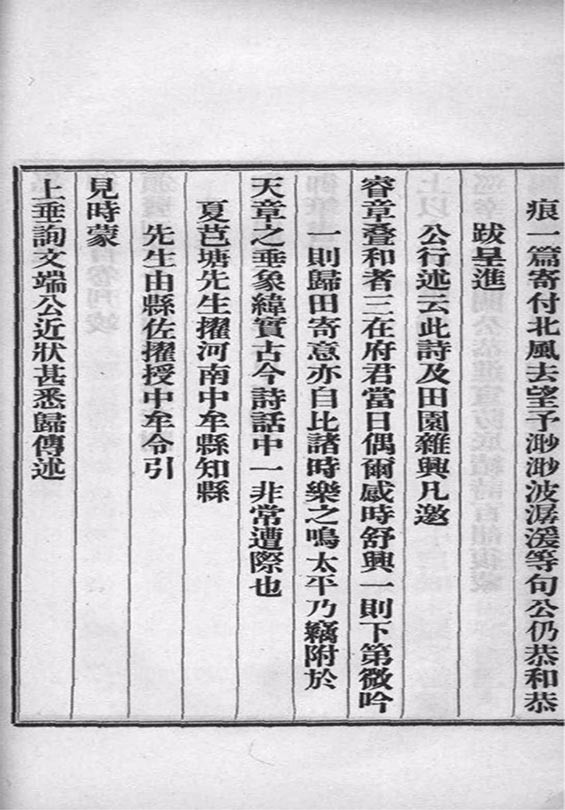 痕一篇寄付北風去望予渺渺波潺湲等句公仍恭和恭
跋呈進
公行述云此詩及田園雜興凡邀
睿章疊和者三在府君當日偶爾感時舒興一則下第微吟
一則歸田寄意亦自比諸時樂之鳴太平乃竊附於
天章之垂象緯實古今詩話中一非常遭際也
夏芭塘先生擢河南中牟縣知縣
先生由縣佐擢授中牟令引
見時蒙
上垂詢文端公近狀甚悉歸傳述